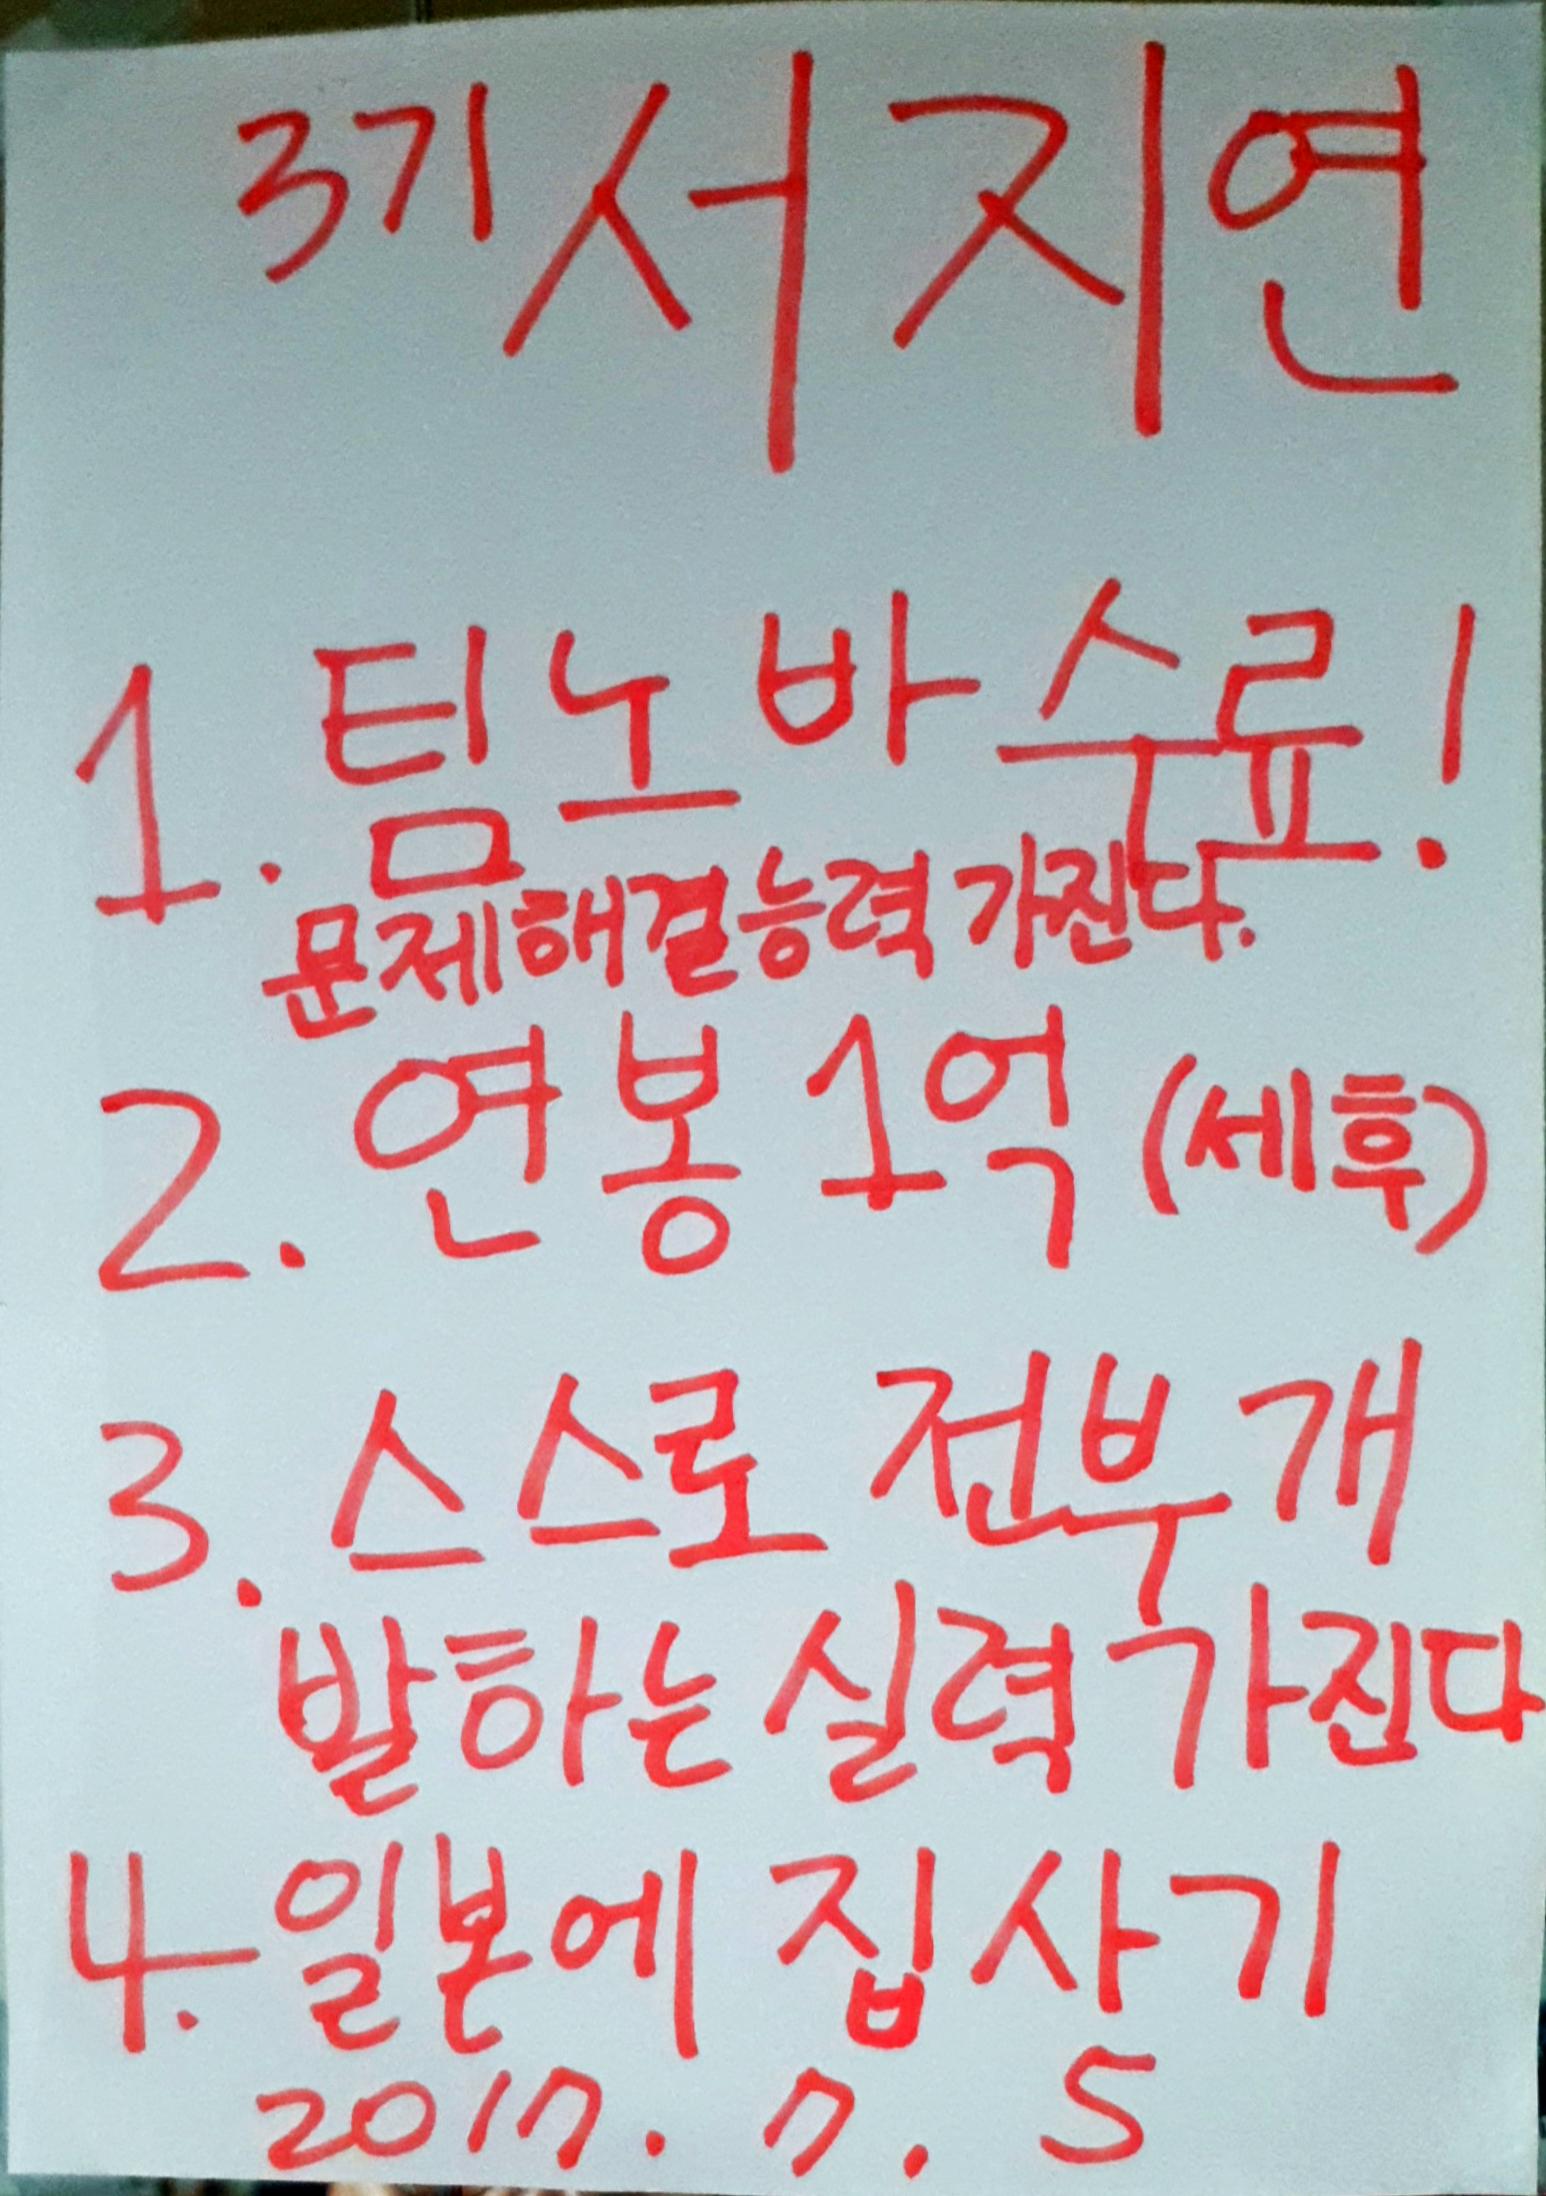 3기 서지연
1. 팀노바 수료!
문제해결능력 가진다.
2. 연봉 1억 (세후)
3. 스스로 전부 개
발하는 실력 가진다
4. 일본에 집 사기
2017. 7. 5